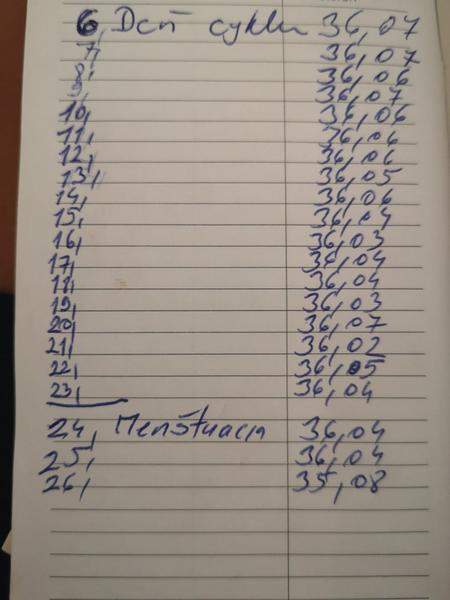 6, Deň cyklu 36,07
7, 36,07
8, 36,06
9, 36,07
10, 36,06
11, 36,06
12, 36,06
13, 36,05
14, 36,06
15, 36,04
16, 36,03
17, 36,04
18, 36,04
19, 36,03
20, 36,07
21, 36,02
22, 36,05
23, 36,04
24, Menštruacia 36,04
25, 36,04
26, 35,08